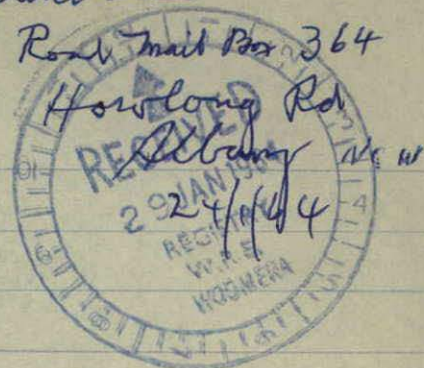 Road Mail Box 364
Howlong Rd
Albury N.S.W
24/1/64
RECEIVED
29 JAN 1964
REGISTRY
W.R.E.
WOOMERA